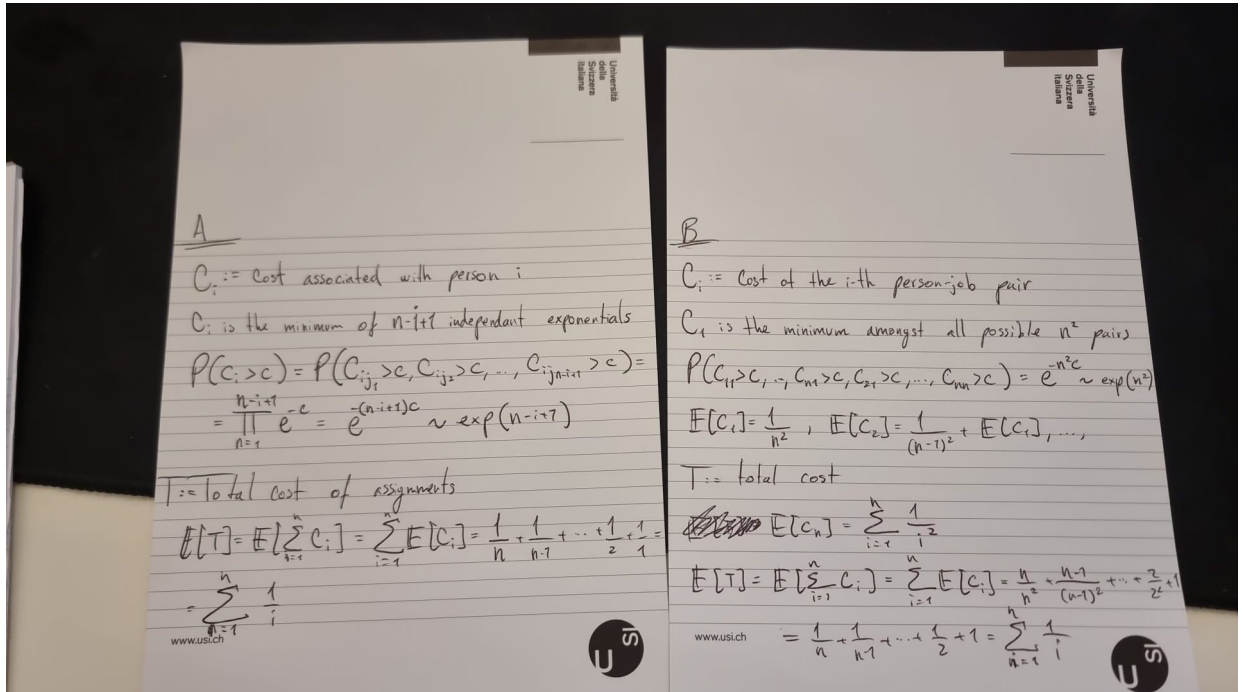 Università
della
Svizzera
italiana
A
C_i := Cost associated with person i
C_i is the minimum of n-i+1 independant exponentials
P(C_i>c) = P(C_{ij_1}>c, C_{ij_2}>c, ..., C_{ij_{n-i+1}}>c) =
= ∏_{n=1}^{n-i+1} e^{-c} = e^{-(n-i+1)c} ~ exp(n-i+1)
T := Total cost of assignments
E[T] = E[∑_{i=1}^{n} C_i] = ∑_{i=1}^{n} E[C_i] = 1/n + 1/(n-1) + ... + 1/2 + 1/1 =
= ∑_{n=1}^{n} 1/i
www.usi.ch
USI
Università
della
Svizzera
italiana
B
C_i := Cost of the i-th person-job pair
C_1 is the minimum amongst all possible n² pairs
P(C_{11}>c, .., C_{n1}>c, C_{21}>c, ..., C_{nn}>c) = e^{-n²c} ~ exp(n²)
E[C_1] = 1/n², E[C_2] = 1/(n-1)² + E[C_1], ...,
T := total cost
E[C_n] = ∑_{i=1}^{n} 1/i²
E[T] = E[∑_{i=1}^{n} C_i] = ∑_{i=1}^{n} E[C_i] = n/n² + (n-1)/(n-1)² + ... + 2/2² + 1
= 1/n + 1/(n-1) + ... + 1/2 + 1 = ∑_{n=1}^{n} 1/i
www.usi.ch
USI